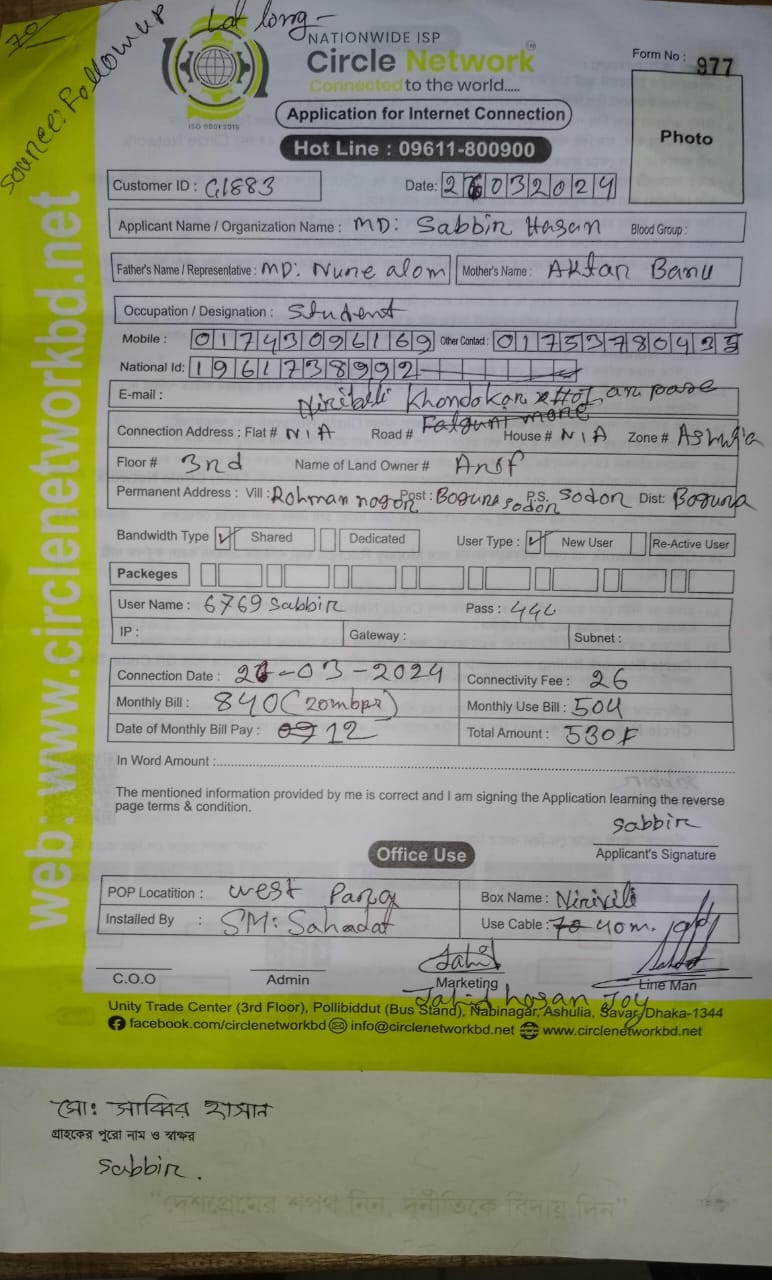 70
Lat long-
source: Followup
NATIONWIDE ISP
Circle Network
Connected to the world.....
ISO 9001:2015
Form No : 977
Application for Internet Connection
Hot Line : 09611-800900
Photo
web: www.circlenetworkbd.net
Customer ID : G1883
Date: 26032024
Applicant Name / Organization Name : MD: Sabbir Hasan Blood Group :
Father's Name / Representative : MD: Nure alom Mother's Name : Aktar Banu
Occupation / Designation : Student
Mobile : 01743096169 Other Contact : 01753780435
National Id: 1961738992
E-mail :
Niribili Khondokar pare
Connection Address : Flat # N/A Road # House # N/A Zone # Ashulia
Floor # 3rd Name of Land Owner # Arif
Permanent Address : Vill : Rohman nogor Post : Bogura sodor P.S. sodor Dist: Bogura
Bandwidth Type Shared Dedicated User Type : New User Re-Active User
Packeges
User Name : 6769sabbir Pass : 444
IP : Gateway : Subnet :
Connection Date : 26-03-2024 Connectivity Fee : 26
Monthly Bill : 840 (20mbps) Monthly Use Bill : 504
Date of Monthly Bill Pay : 12 Total Amount : 530
In Word Amount :
The mentioned information provided by me is correct and I am signing the Application learning the reverse
page terms & condition.
sabbir
Applicant's Signature
Office Use
POP Locatition : west Box Name : Nirivili
Installed By : SM: Sahadat Use Cable : 40m.
C.O.O Admin Marketing Line Man
Jahid hosan Joy
Unity Trade Center (3rd Floor), Pollibiddut (Bus Stand), Nabinagar, Ashulia, Savar, Dhaka-1344
facebook.com/circlenetworkbd info@circlenetworkbd.net www.circlenetworkbd.net
মো: সাব্বির হাসান
গ্রাহকের পুরো নাম ও স্বাক্ষর
sabbir.
"দেশপ্রেমের শপথ নিন, দুর্নীতিকে বিদায় দিন"